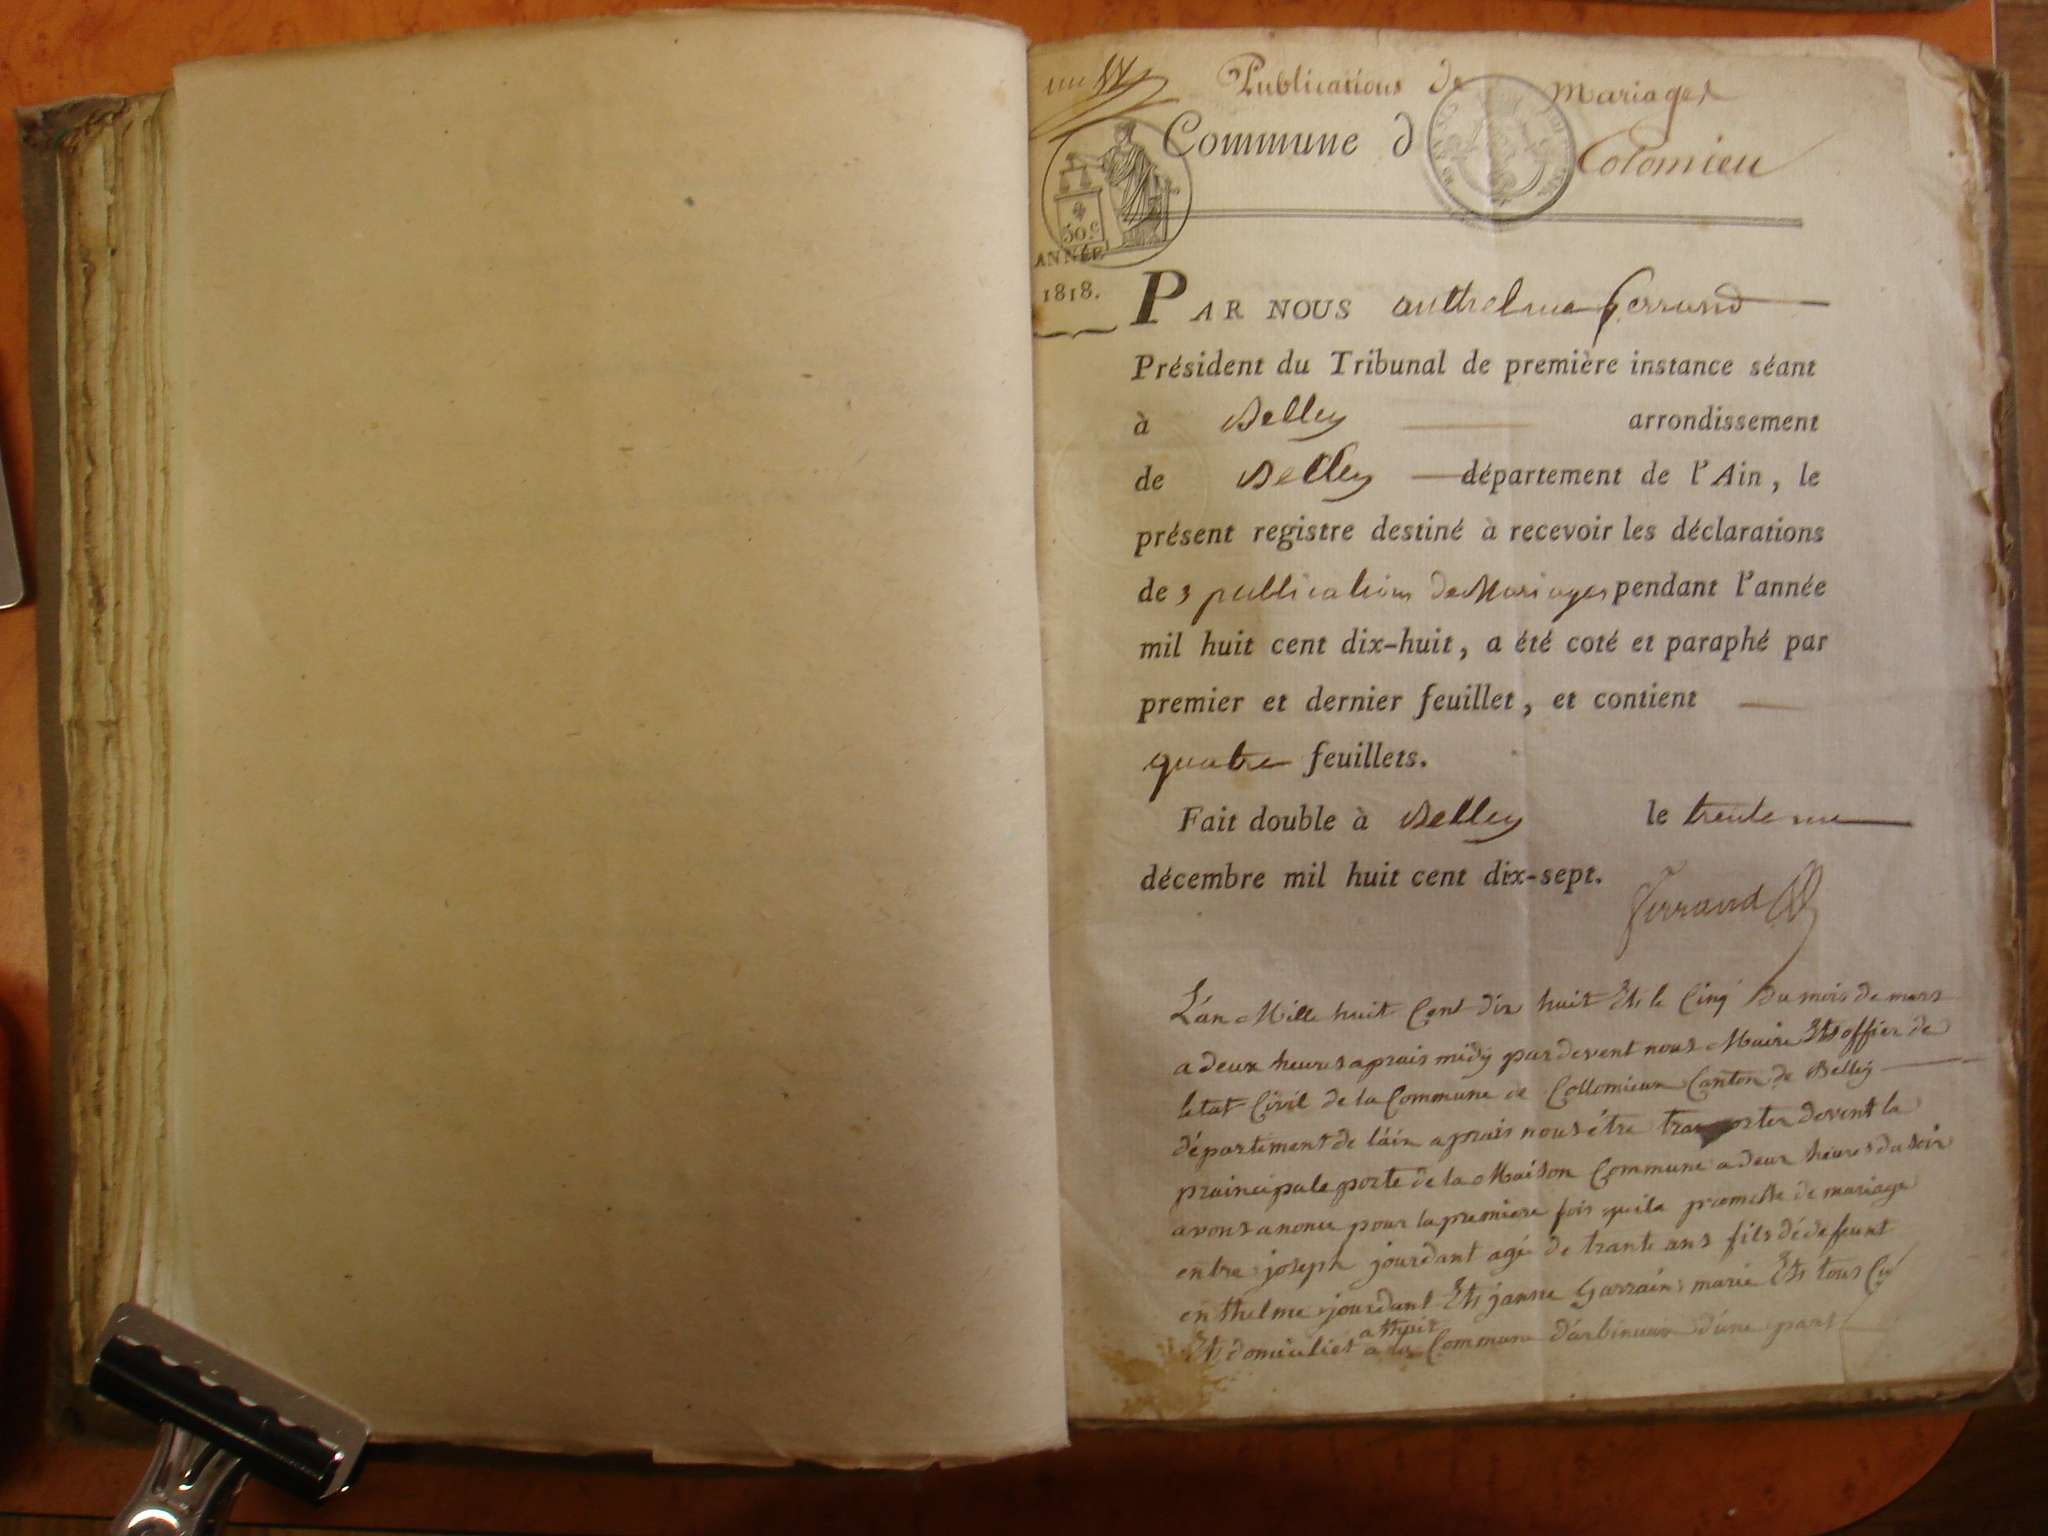 Publications de Mariages
Commune d Colomieu
50.c
ANNÉE
1818.
PAR NOUS anthelme ferrand
Président du Tribunal de première instance séant
à Belley arrondissement
de Belley département de l'Ain, le
présent registre destiné à recevoir les déclarations
de s publications de Mariages pendant l'année
mil huit cent dix-huit, a été coté et paraphé par
premier et dernier feuillet, et contient
quatre feuillets.
Fait double à Belley le trente un
décembre mil huit cent dix-sept.
ferrand
L'an Mille huit Cent dix huit Et le Cinq du mois de mars
a deux heures aprais midÿ pardevent nous Maire Et offier de
letat Civil de la Commune de Collomieux Canton de Belleÿ
département de láin aprais nous étre transporter devent la
prainsipale porte de la Maison Commune a deux heures du soir
avons anonce pour la premiere fois quila promette de mariage
entre joseph jourdant agé de trante ans fils dé defeunt
enthelme jourdant Et janne Garrain marié Et tous
Et domicilies a la Commune d'arbinieux d'une part